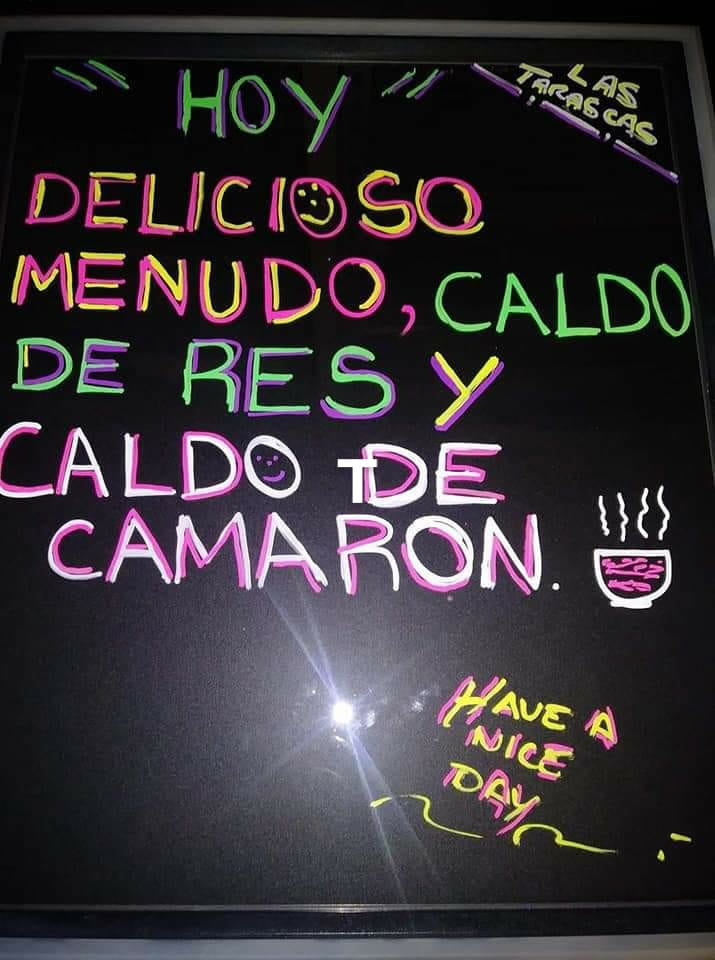 " HOY "
LAS
TARASCAS
DELICIOSO
MENUDO, CALDO
DE RES Y
CALDO TDE
CAMARON.
HAVE A
NICE
DAY